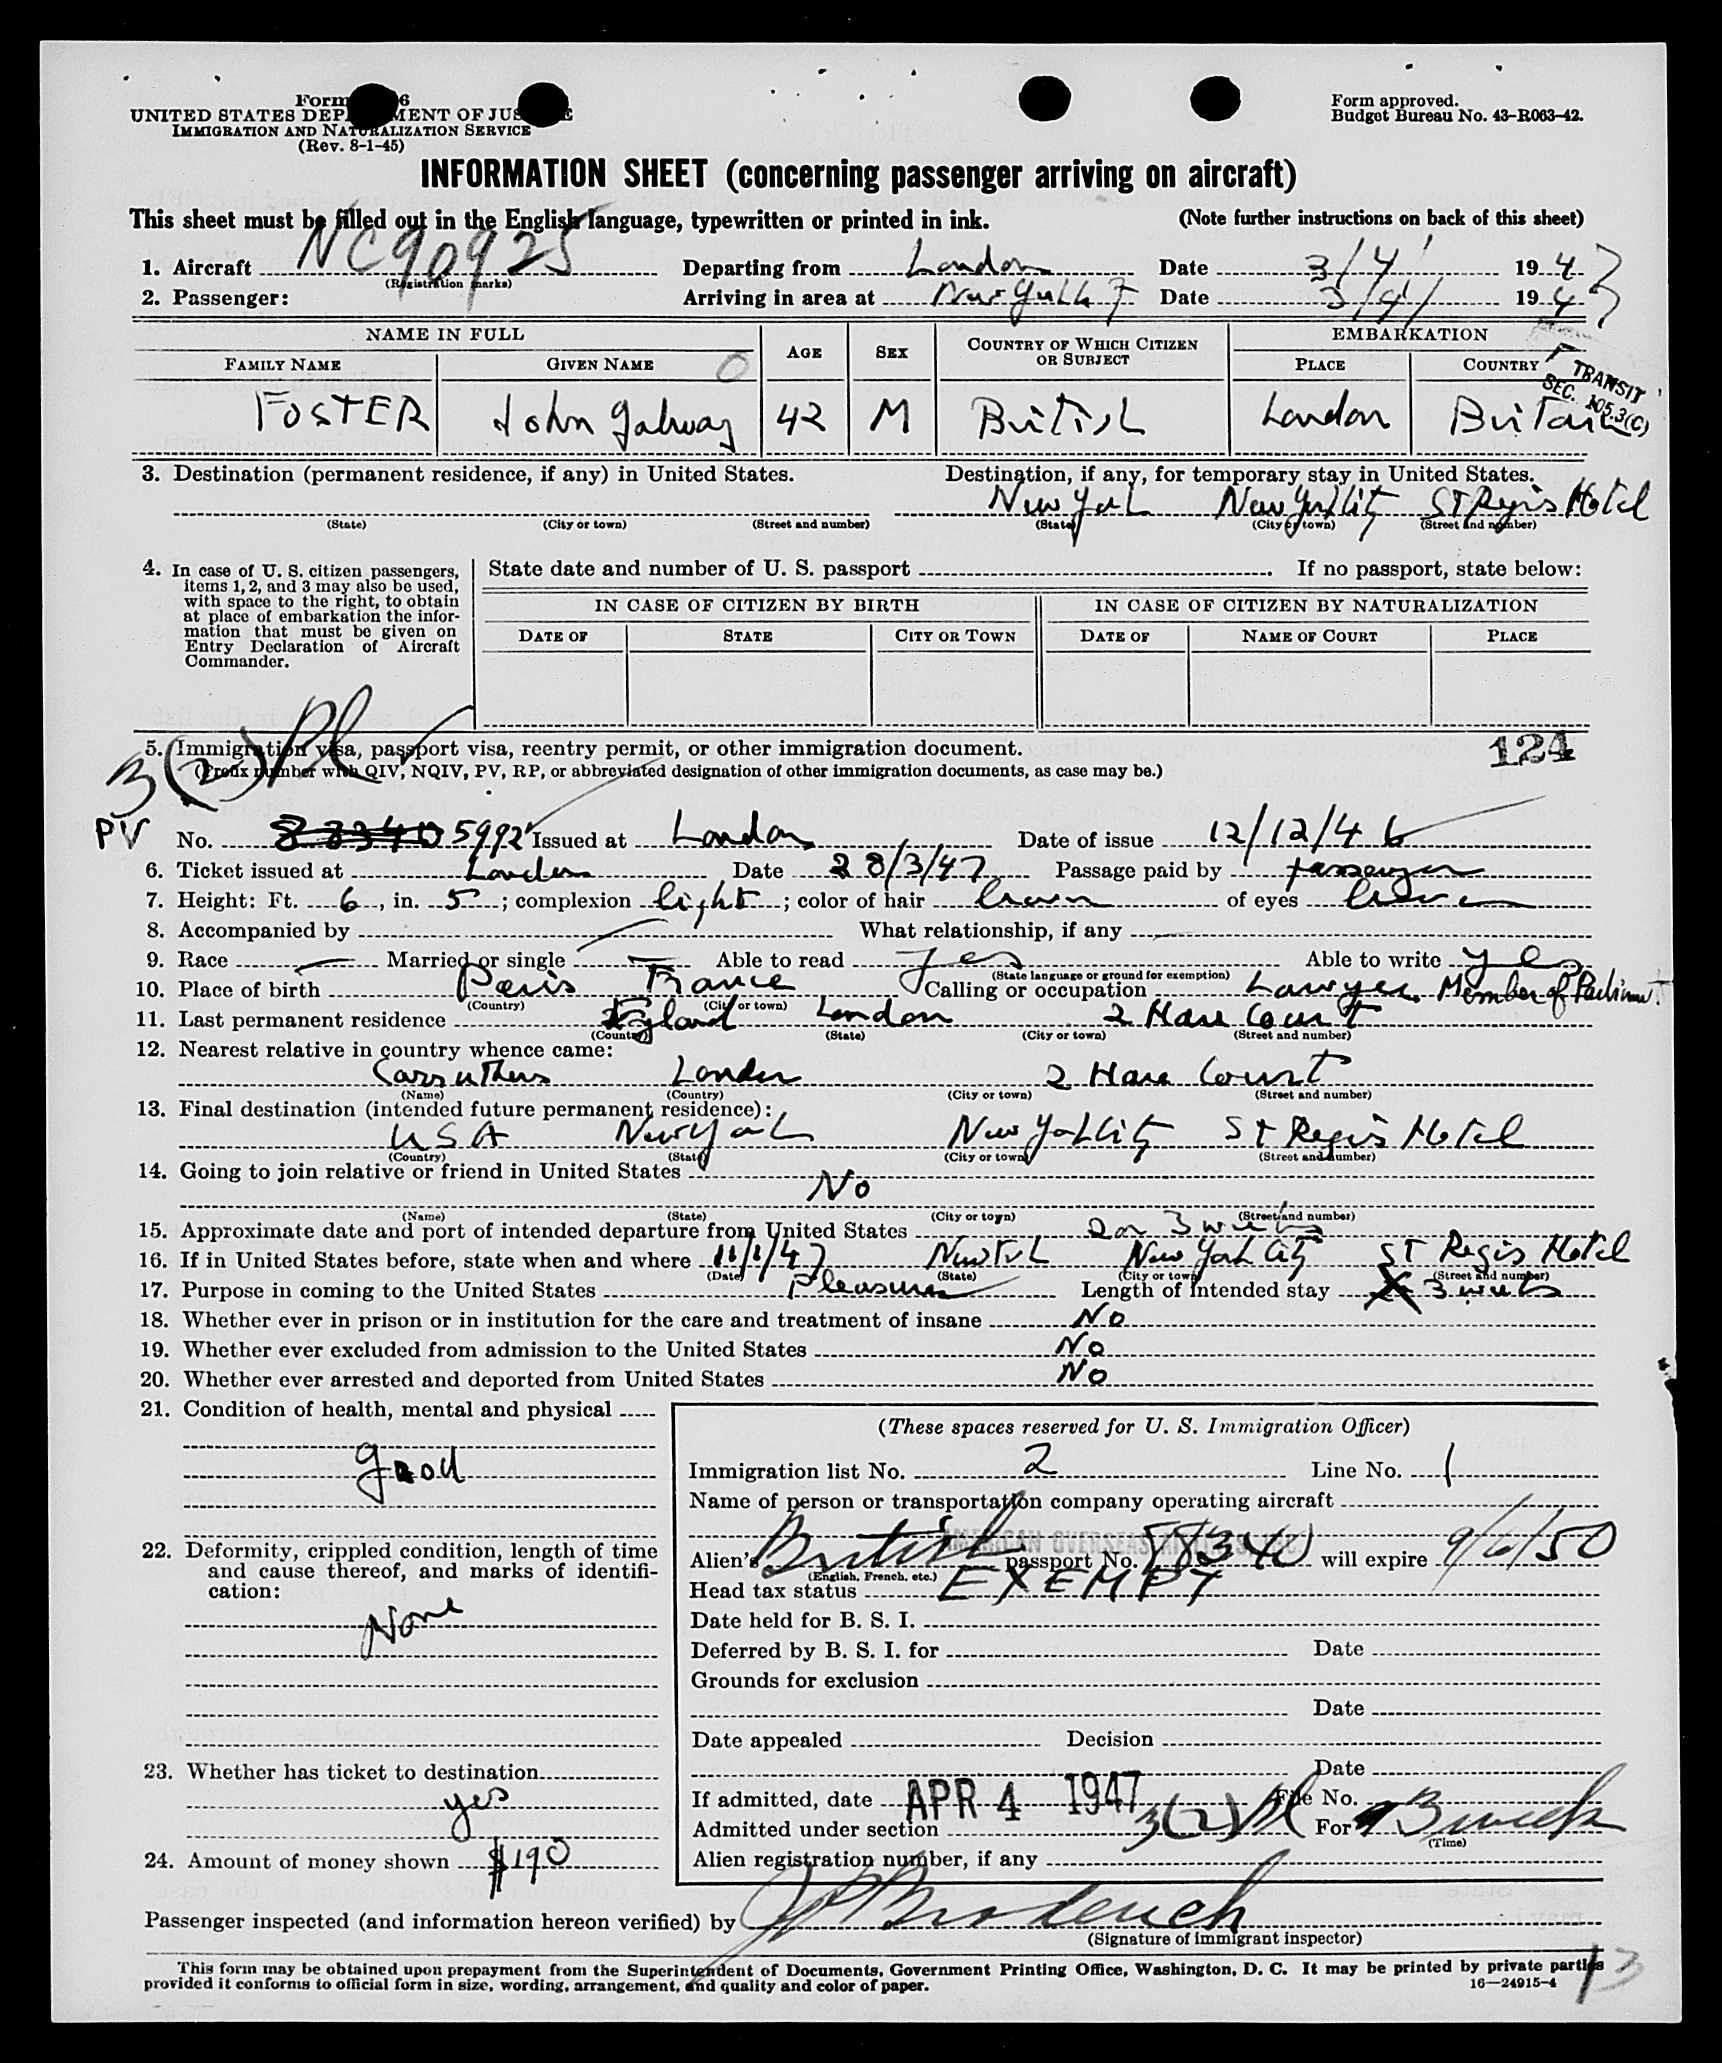 Form 6
UNITED STATES DEP MENT OF JUS E
IMMIGRATION AND NATURALIZATION SERVICE
(Rev. 8-1-45)
Form approved.
Budget Bureau No. 43-R063-42.
INFORMATION SHEET (concerning passenger arriving on aircraft)
This sheet must be filled out in the English language, typewritten or printed in ink. (Note further instructions on back of this sheet)
1. Aircraft NC90925 Departing from London Date 3/4/ 1947
(Registration marks)
2. Passenger: Arriving in area at New York Date 3/4/ 1947
NAME IN FULL AGE SEX COUNTRY OF WHICH CITIZEN OR SUBJECT EMBARKATION
FAMILY NAME GIVEN NAME PLACE COUNTRY
TRANSIT
SEC. 105.3(C)
FOSTER John Galway 42 M British London Britain
3. Destination (permanent residence, if any) in United States. Destination, if any, for temporary stay in United States.
New York New York City St Regis Hotel
(State) (City or town) (Street and number) (State) (City or town) (Street and number)
4. In case of U. S. citizen passengers, items 1, 2, and 3 may also be used, with space to the right, to obtain at place of embarkation the information that must be given on Entry Declaration of Aircraft Commander.
State date and number of U. S. passport . If no passport, state below:
IN CASE OF CITIZEN BY BIRTH IN CASE OF CITIZEN BY NATURALIZATION
DATE OF STATE CITY OR TOWN DATE OF NAME OF COURT PLACE
3(2) Pl
5. Immigration visa, passport visa, reentry permit, or other immigration document. 124
(Prefix number with QIV, NQIV, PV, RP, or abbreviated designation of other immigration documents, as case may be.)
PV No. 88340 5992 Issued at London Date of issue 12/12/46
6. Ticket issued at London Date 28/3/47 Passage paid by passenger
7. Height: Ft. 6, in. 5; complexion light; color of hair brown of eyes brown
8. Accompanied by What relationship, if any
9. Race Married or single Able to read yes Able to write yes
(State language or ground for exemption)
10. Place of birth Paris France Calling or occupation Lawyer. Member of Parliament
(Country) (City or town)
11. Last permanent residence England London 2 Hare Court
(Country) (State) (City or town) (Street and number)
12. Nearest relative in country whence came:
Carruthers London 2 Hare Court
(Name) (Country) (City or town) (Street and number)
13. Final destination (intended future permanent residence):
USA New York New York City St Regis Hotel
(Country) (State) (City or town) (Street and number)
14. Going to join relative or friend in United States
No
(Name) (State) (City or town) (Street and number)
15. Approximate date and port of intended departure from United States 2 or 3 weeks
16. If in United States before, state when and where 11/1/47 New York New York City ST Regis Hotel
(Date) (State) (City or town) (Street and number)
17. Purpose in coming to the United States Pleasure Length of intended stay 3 weeks
18. Whether ever in prison or in institution for the care and treatment of insane No
19. Whether ever excluded from admission to the United States No
20. Whether ever arrested and deported from United States No
21. Condition of health, mental and physical
good
22. Deformity, crippled condition, length of time and cause thereof, and marks of identification:
None
23. Whether has ticket to destination
yes
24. Amount of money shown $190
(These spaces reserved for U. S. Immigration Officer)
Immigration list No. 2 Line No. 1
Name of person or transportation company operating aircraft
AMERICAN OVERSEAS AIRLINES, INC.
Alien's British passport No. 88340 will expire 9/6/50
(English, French, etc.)
Head tax status EXEMPT
Date held for B. S. I.
Deferred by B. S. I. for Date
Grounds for exclusion
Date
Date appealed Decision
Date
If admitted, date APR 4 1947 File No.
Admitted under section 3(2) Pl For 3 weeks
(Time)
Alien registration number, if any
Passenger inspected (and information hereon verified) by
(Signature of immigrant inspector)
This form may be obtained upon prepayment from the Superintendent of Documents, Government Printing Office, Washington, D. C. It may be printed by private parties
provided it conforms to official form in size, wording, arrangement, and quality and color of paper. 16—24915-4
13